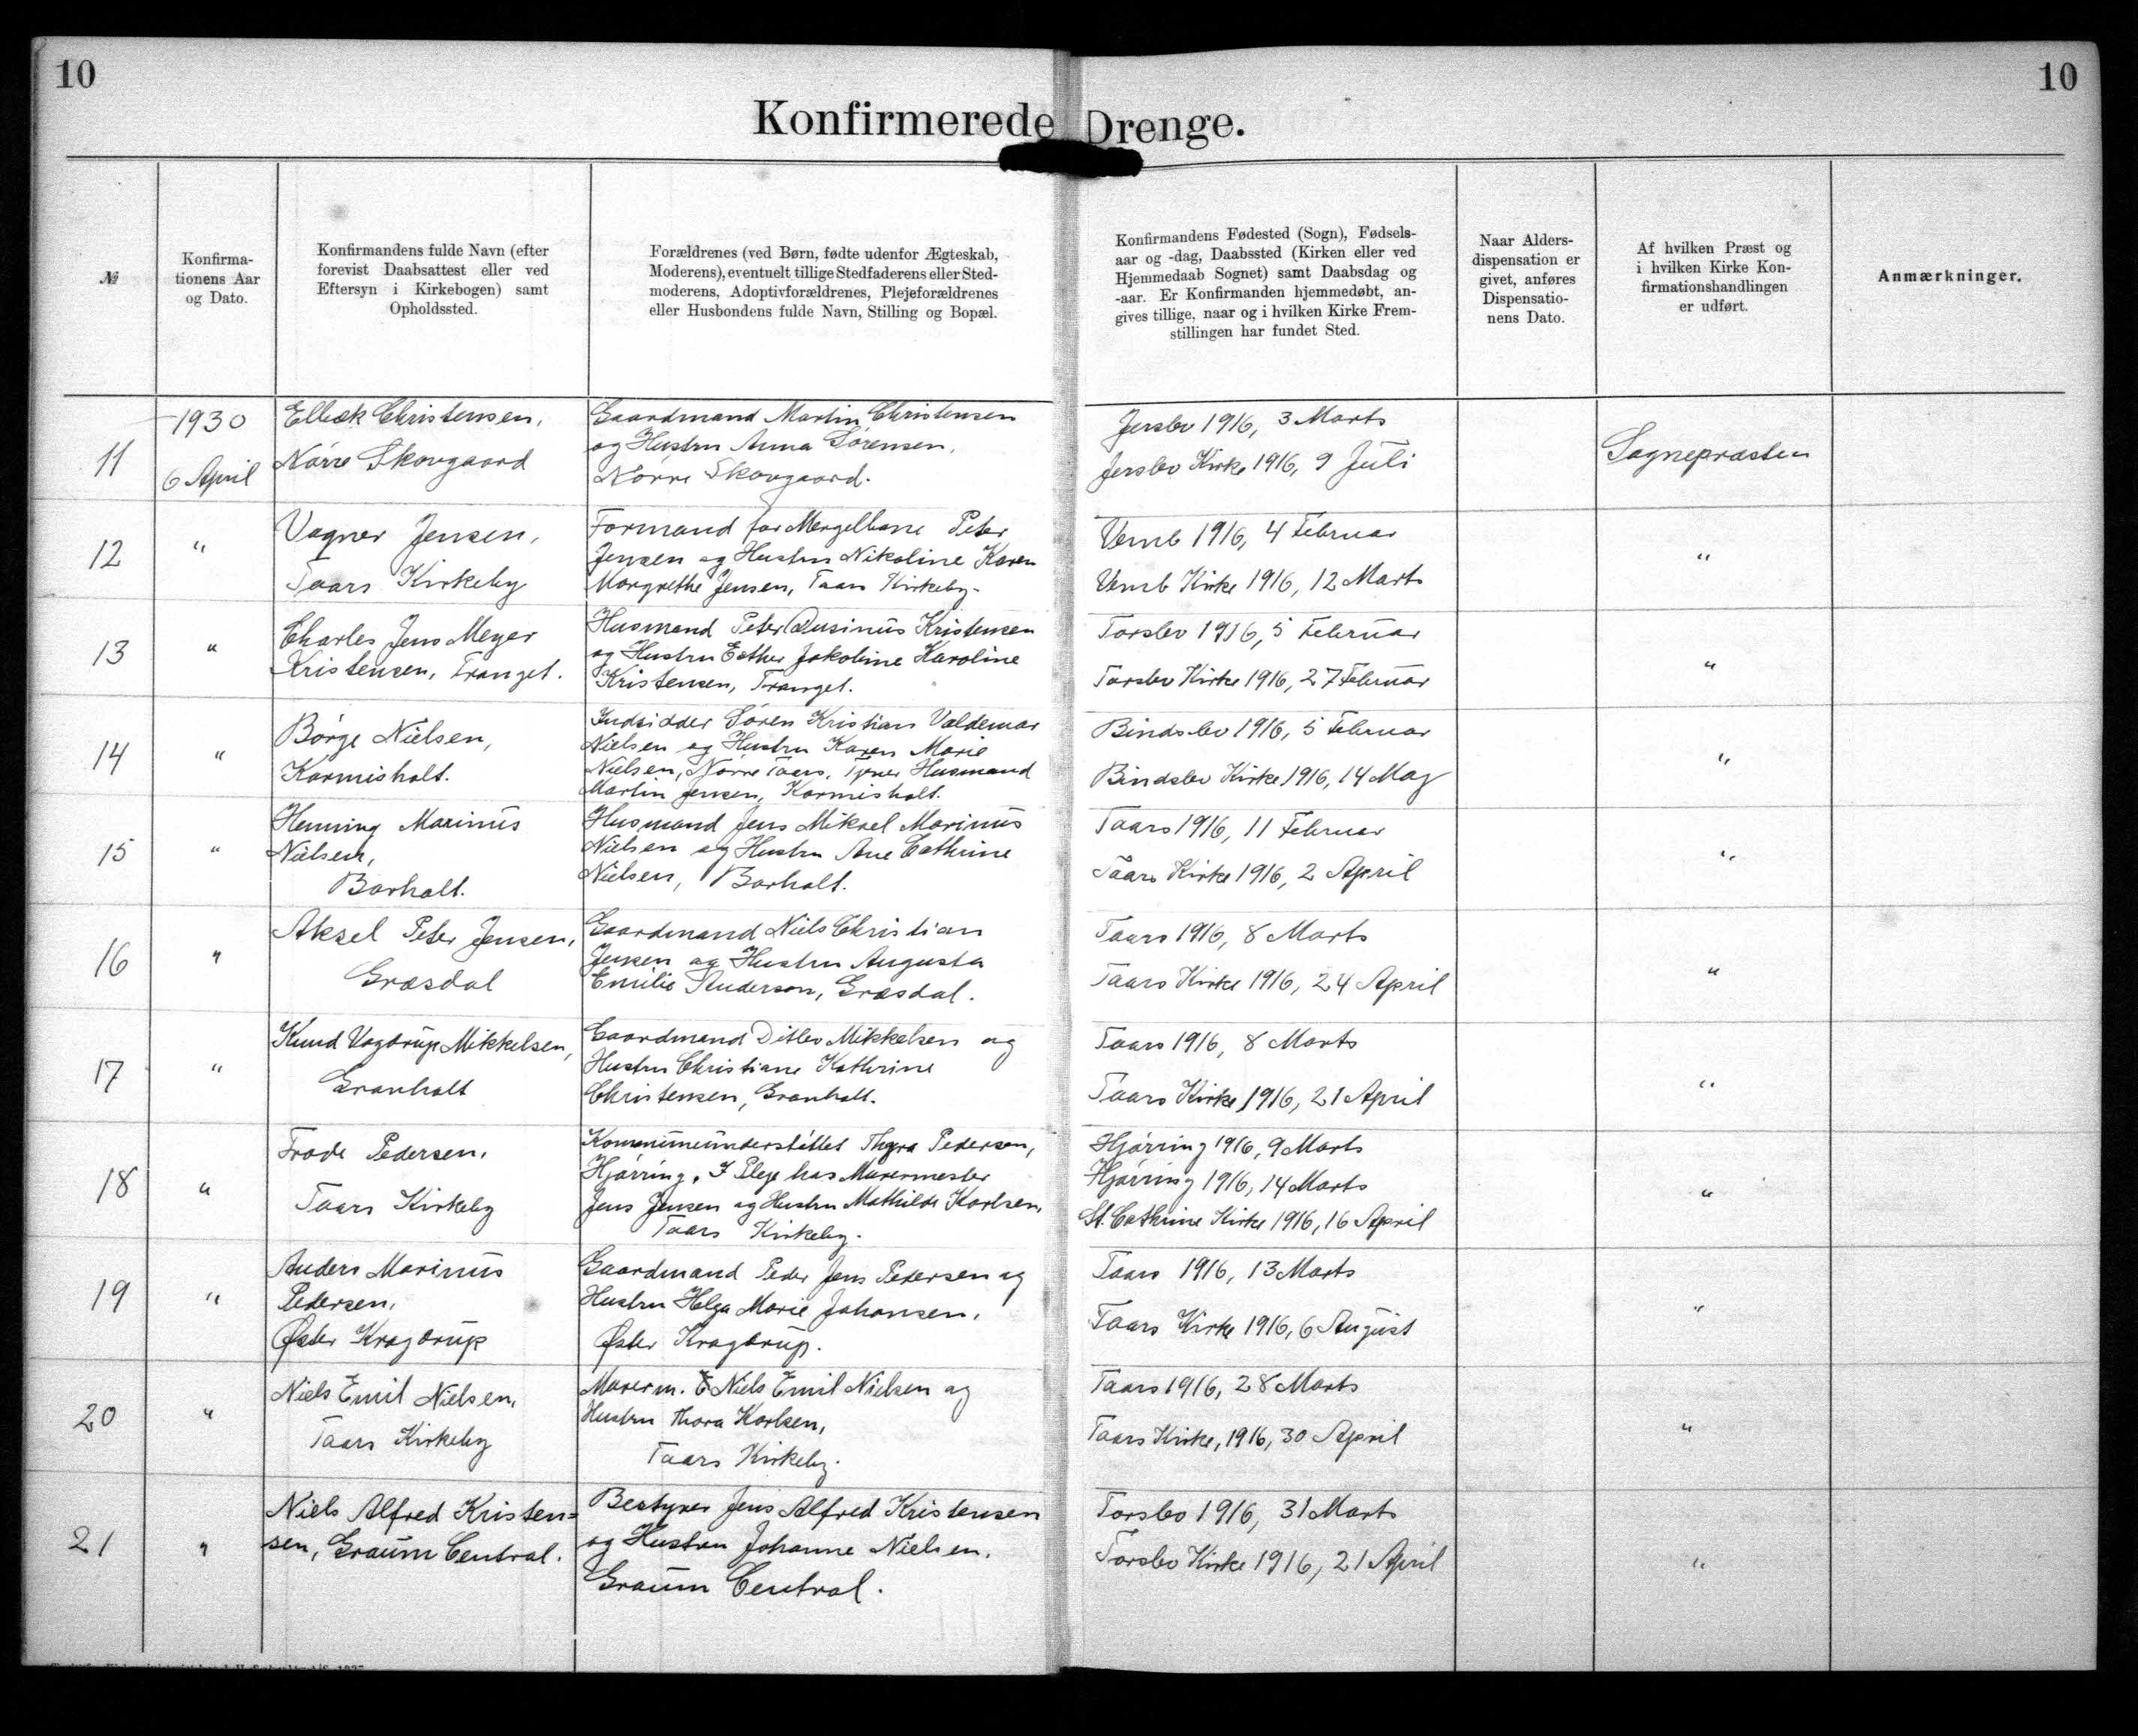 10
10
Konfirmerede Drenge.
№
Konfirma-
tionens Aar
og Dato.
Konfirmandens fulde Navn (efter
forevist Daabsattest eller ved
Eftersyn i Kirkebogen) samt
Opholdssted.
Forældrenes (ved Børn, fødte udenfor Ægteskab,
Moderens), eventuelt tillige Stedfaderens eller Sted-
moderens, Adoptivforældrenes, Plejeforældrenes
eller Husbondens fulde Navn, Stilling og Bopæl.
Konfirmandens Fødested (Sogn), Fødsels-
aar og -dag, Daabssted (Kirken eller ved
Hjemmedaab Sognet) samt Daabsdag og
-aar. Er Konfirmanden hjemmedøbt, an-
gives tillige, naar og i hvilken Kirke Frem-
stillingen har fundet Sted.
Naar Alders-
dispensation er
givet, anføres
Dispensatio-
nens Dato.
Af hvilken Præst og
i hvilken Kirke Kon-
firmationshandlingen
er udført.
Anmærkninger.
11
1930
6 April
Elbæk Christensen,
Nørre Skovgaard
Gaardmand Martin Christensen
og Hustru Anna Sørensen,
Nørre Skovgaard.
Jerslev 1916, 3 Marts
Jerslev Kirke 1916, 9 Juli
Sognepræsten
12
"
Vagner Jensen,
Taars Kirkeby
Formand for Mergelbane Peter
Jensen og Hustru Nikoline Karen
Margrethe Jensen, Taars Kirkeby.
Vemb 1916, 4 Februar
Vemb Kirke 1916, 12 Marts
"
13
"
Charles Jens Meyer
Kristensen, Tranget.
Husmand Peter Kristensen
og Hustru Esther Jakobine Karoline
Kristensen, Tranget.
Torslev 1916, 5 Februar
Torslev Kirke 1916, 27 Februar
"
14
"
Børge Nielsen,
Karmisholt.
Indsidder Søren Kristian Valdemar
Nielsen og Hustru Karen Marie
Nielsen, Nørre Taars. Tjener Husmand
Martin Jensen, Karmisholt.
Bindslev 1916, 5 Februar
Bindslev Kirke 1916, 14 Maj
"
15
"
Henning Marinus
Nielsen,
Barholt.
Husmand Jens Mikael Marinus
Nielsen og Hustru Ane Cathrine
Nielsen, Barholt.
Taars 1916, 11 Februar
Taars Kirke 1916, 2 April
"
16
"
Aksel Peter Jensen,
Græsdal
Gaardmand Niels Christian
Jensen og Hustru Augusta
Emilie Anderson, Græsdal.
Taars 1916, 8 Marts
Taars Kirke 1916, 24 April
"
17
"
Knud Vogdrup Mikkelsen,
Granholt
Gaardmand Ditlev Mikkelsen og
Hustru Christiane Kathrine
Christensen, Granholt.
Taars 1916, 8 Marts
Taars Kirke 1916, 21 April
"
18
"
Frode Pedersen,
Taars Kirkeby
Kommuneunderstöttet Thyra Pedersen,
Hjørring. I Pleje hos Murermester
Jens Jensen og Hustru Mathilde Karlsen,
Taars Kirkeby.
Hjørring 1916, 9 Marts
Hjørring 1916, 14 Marts
St. Cathrine Kirke 1916, 16 April
"
19
"
Anders Marinus
Pedersen,
Øster Kragdrup
Gaardmand Peder Jens Pedersen og
Hustru Helga Marie Johansen,
Øster Kragdrup.
Taars 1916, 13 Marts
Taars Kirke 1916, 6 August
"
20
"
Niels Emil Nielsen,
Taars Kirkeby
Murerm. Niels Emil Nielsen og
Hustru Thora Karlsen,
Taars Kirkeby.
Taars 1916, 28 Marts
Taars Kirke, 1916, 30 April
"
21
"
Niels Alfred Kristen=
sen, Graum Central.
Bestyrer Jens Alfred Kristensen
og Hustru Johanne Nielsen,
Graum Central.
Torslev 1916, 31 Marts
Torslev Kirke 1916, 21 April
"